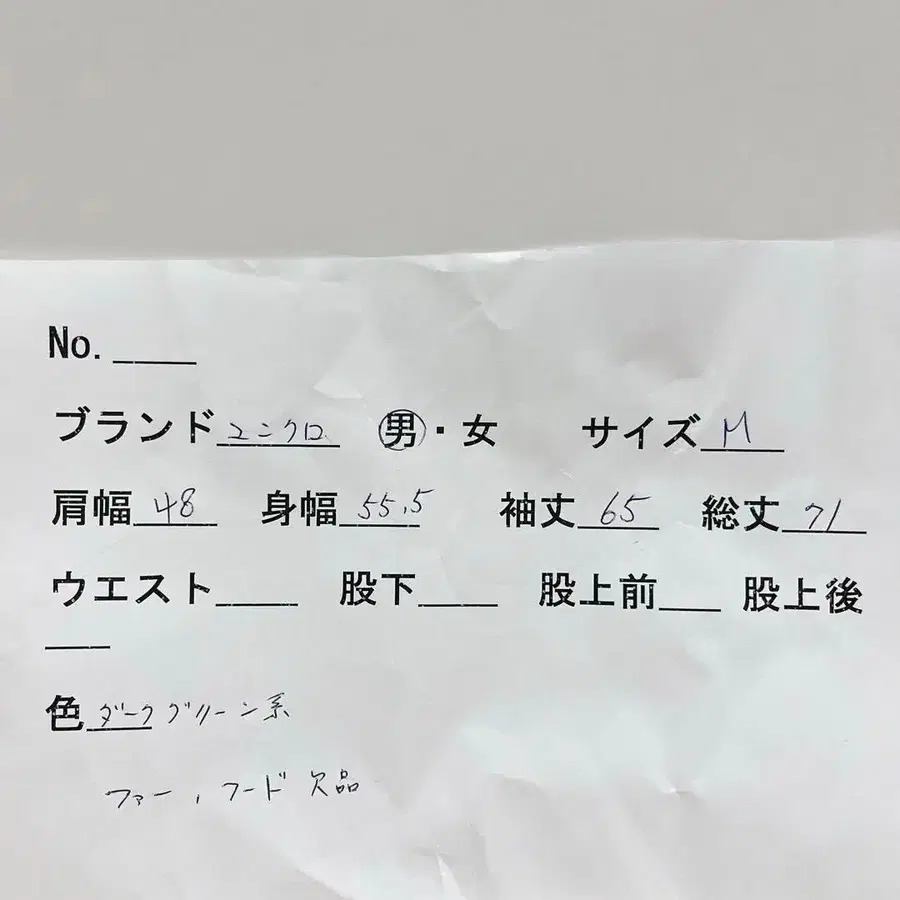 No.
ブランド ユニクロ 男・女 サイズ M
肩幅 48 身幅 55.5 袖丈 65 総丈 71
ウエスト 股下 股上前 股上後
色 ダークグリーン系
ファー, フード 欠品